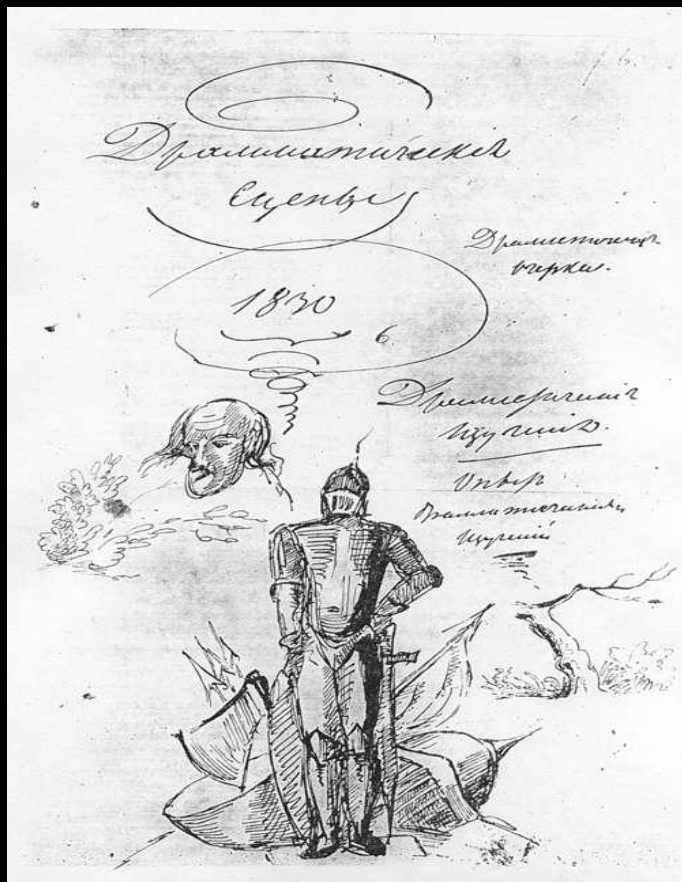 Драмматическія
Сцены
1830
Драматическіе
очерки.
Драматическія
изученія.
Опытъ
драмматическихъ
изученій